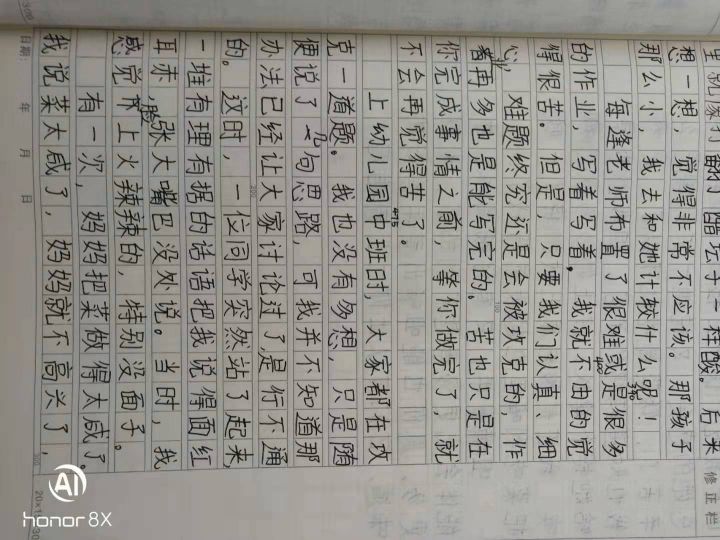 里就像打翻了醋坛子一样酸。后来
想一想，觉得非常不应该。那孩子
那么小，我去和她计较什么呢！
每逢老师布置了很难或是很多
的作业，写着写着，我就不由的觉
得很苦。但是，只要我们认真、细
心，难题终究还是会被攻克的，作
业再多也是能写完的。苦也只是在
你完成事情之前，等你做完了，就
不会再觉得苦了。
上幼儿园中班时，大家都在攻
克一道题。我也没有多想，只是随
便说了几句思路，可我并不知道那
办法已经让大家讨论过了，是行不通
的。这时，一位同学突然站了起来，
一堆有理有据的话语把我说得面红
耳赤，张大嘴巴没处说。当时，我
感觉脸上火辣辣的，特别没面子。
有一次，妈妈把菜做得太咸了。
我说菜太咸了，妈妈就不高兴了，
日期： 年 月 日
修正栏
300
AI
honor 8X